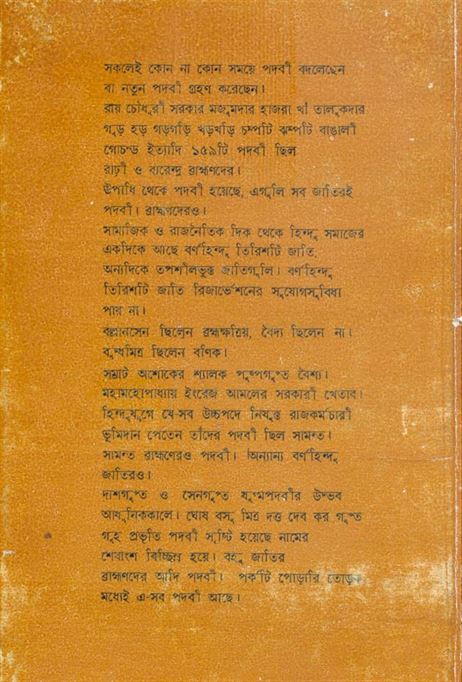 সকলেই কোন না কোন সময়ে পদবী বদলেছেন
বা নতুন পদবী গ্রহণ করেছেন।
রায় চৌধুরী সরকার মজুমদার হাজরা খাঁ তালুকদার
গুড় হড় গড়গড়ি খড়খড়ি চম্পটি ঝম্পটি বাঙালী
গোচন্ড ইত্যাদি ১৫৯টি পদবী ছিল
রাঢ়ী ও বারেন্দ্র ব্রাহ্মণদের।
উপাধি থেকে পদবী হয়েছে, এগুলি সব জাতিরই
পদবী। ব্রাহ্মণদেরও।
সামাজিক ও রাজনৈতিক দিক থেকে হিন্দু সমাজের
একদিকে আছে বর্ণহিন্দু তিরিশটি জাতি,
অন্যদিকে তপশীলভুক্ত জাতিগুলি। বর্ণহিন্দু
তিরিশটি জাতি রিজার্ভেশনের সুযোগসুবিধা
পায় না।
বল্লালসেন ছিলেন ব্রহ্মক্ষত্রিয়, বৈদ্য ছিলেন না।
বুধমিত্র ছিলেন বণিক।
সম্রাট অশোকের শ্যালক পুষ্পগুপ্ত বৈশ্য।
মহামহোপাধ্যায় ইংরেজ আমলের সরকারী খেতাব।
হিন্দুযুগে যে-সব উচ্চপদে নিযুক্ত রাজকর্মচারী
ভূমিদান পেতেন তাঁদের পদবী ছিল সামন্ত।
সামন্ত ব্রাহ্মণেরও পদবী। অন্যান্য বর্ণহিন্দু
জাতিরও।
দাশগুপ্ত ও সেনগুপ্ত যুগ্মপদবীর উদ্ভব
আধুনিককালে। ঘোষ বসু মিত্র দত্ত দেব কর গুপ্ত
গুহ প্রভৃতি পদবী সৃষ্টি হয়েছে নামের
শেষাংশ বিচ্ছিন্ন হয়ে। বহু জাতির
ব্রাহ্মণদের আদি পদবী। পর্কটি পোড়ারি তোড়ক
মধ্যেই এ-সব পদবী আছে।